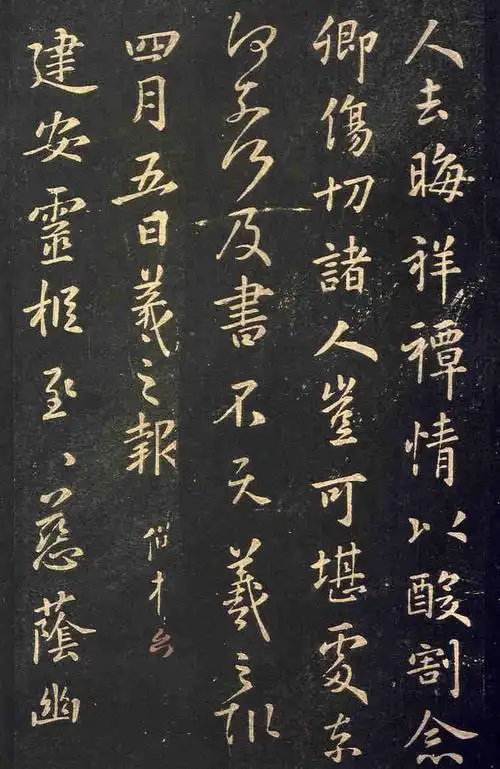 人去晦祥禫情以酸割念
卿傷切諸人豈可堪處奈
何奈何及書不次羲之報
四月五日羲之報
建安靈柩至、慈蔭幽